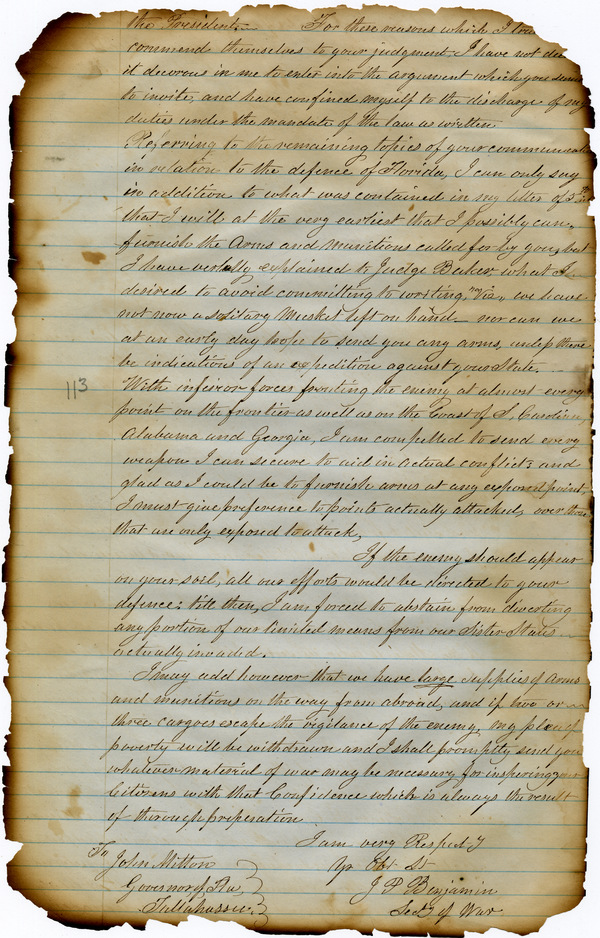 the President. For these reasons which I
commend themselves to your judgment I have not
it decorous in me to enter into the argument which you seem
to invite, and have confined myself to the discharge of my
duties under the mandate of the law as written
Referring to the remaining topics of your
in relation to the defence of Florida, I can only say
in addition to what was contained in my letter of
that I will at the very earliest that I possibly can,
furnish the Arms and Munitions called for by you, but
I have verbally explained to Judge Baker what I
desired to avoid committing to writing, viz, we have
not now a solitary Musket left on hand nor can we
at an early day hope to send you any arms, unless there
be indications of an expedition against your State.
113
With inferior forces fronting the enemy at almost every
point on the frontier as well as on the Coast of S. Carolina,
Alabama and Georgia, I am compelled to send every
weapon I can secure to aid in actual conflict; and
glad as I would be to furnish arms at any exposed point,
I must give preference to points actually attacked, over those
that are only exposed to attack,
If the enemy should appear
on your soil, all our efforts would be directed to your
defence; till then, I am forced to abstain from diverting
any portion of our limited means from our Sister States
actually invaded.
I may add however that we have large supplies of Arms
and munitions on the way from abroad, and if two or
three cargoes escape the vigilance of the enemy, my plea of
poverty will be withdrawn and I shall promptly send you
whatever material of war may be necessary for inspiring your
Citizens with that Confidence which is always the result
of thorough preparation
I am very Respect y
To
Yr Obt St
John Milton
J P Benjamin
Governor of Fla
Secy of War
Tallahassee